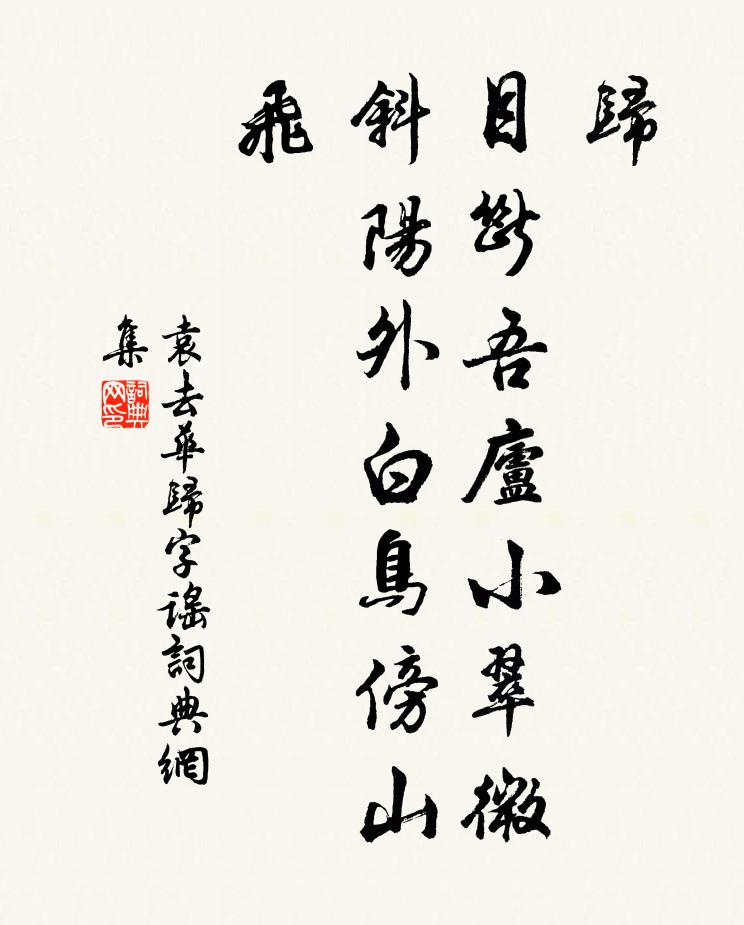 歸
目斷吾廬小翠微
斜陽外白鳥傍山
飛
袁去華歸字謠詞典網
集
詞典
网印